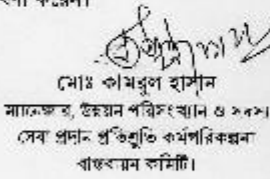 করেন।
মোঃ কামরুল হাসান
ম্যানেজার, উন্নয়ন পরিসংখ্যান ও সদস্য
সেবা প্রদান প্রতিশ্রুতি কর্মপরিকল্পনা
বাস্তবায়ন কমিটি।